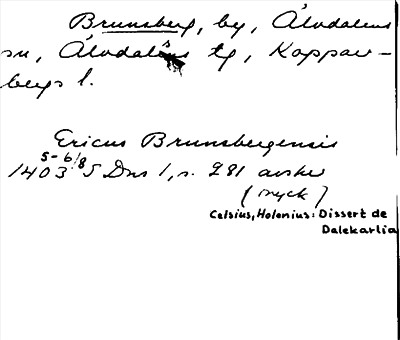 Brunsberg, by, Älvdalens
sn, Älvdalens tg, Koppar-
bergs l.
Ericus Brunsbergensis
5-6/8
1403 S Dns 1, s. 281 avskr
(tryck)
Celsius, Holenius: Dissert de
Dalekarlia